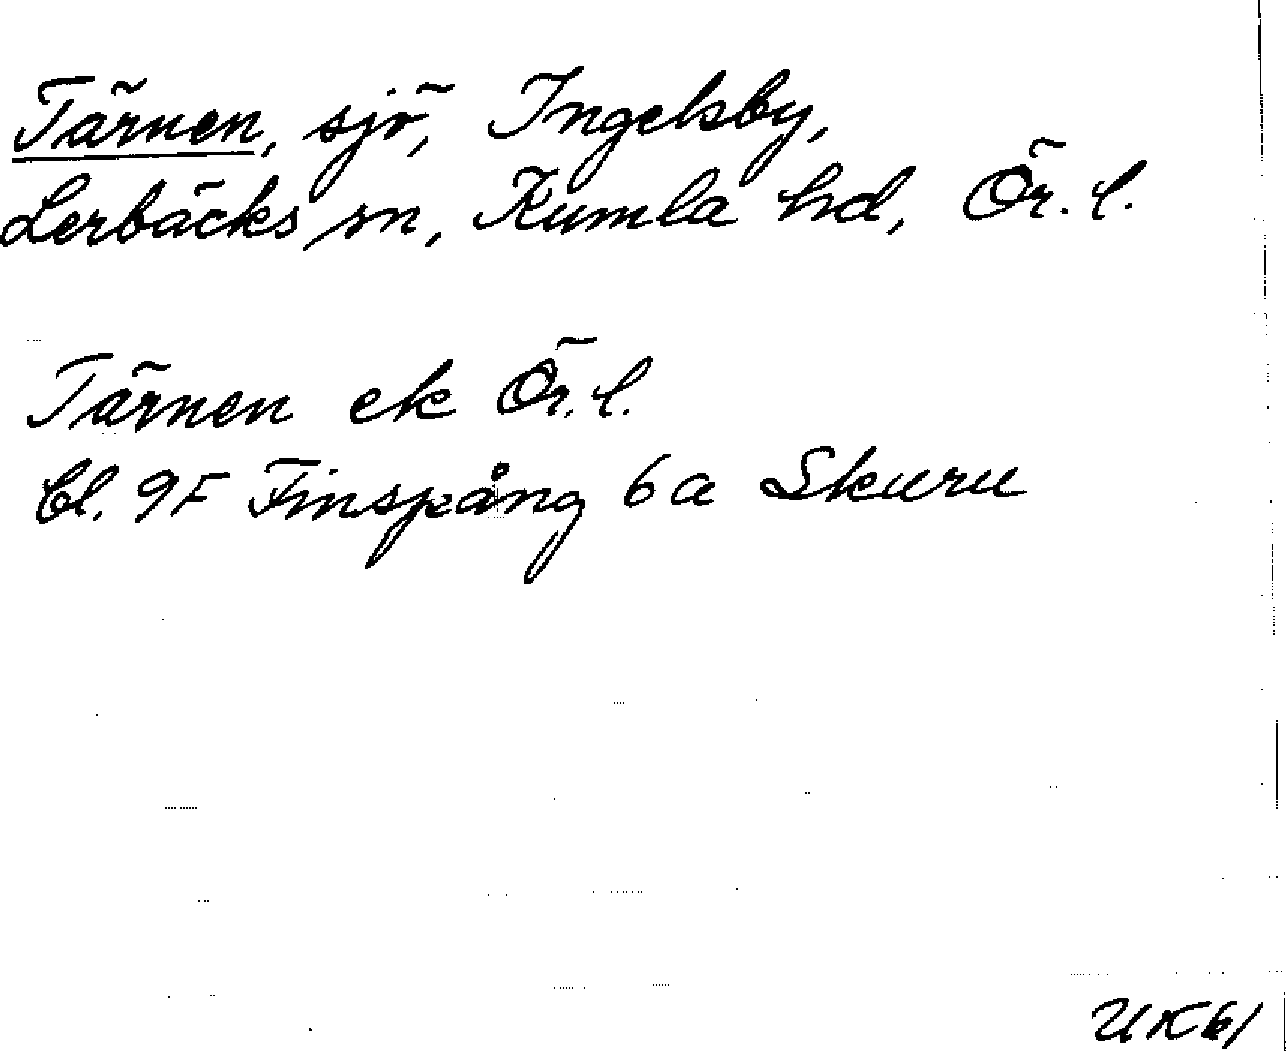 Tärnen, sjö, Ingelsby,
Lerbäcks sn, Kumla hd, Ör. l.
Tärnen ek Ör. l.
bl. 9F Finspång 6a Skuru
UK61